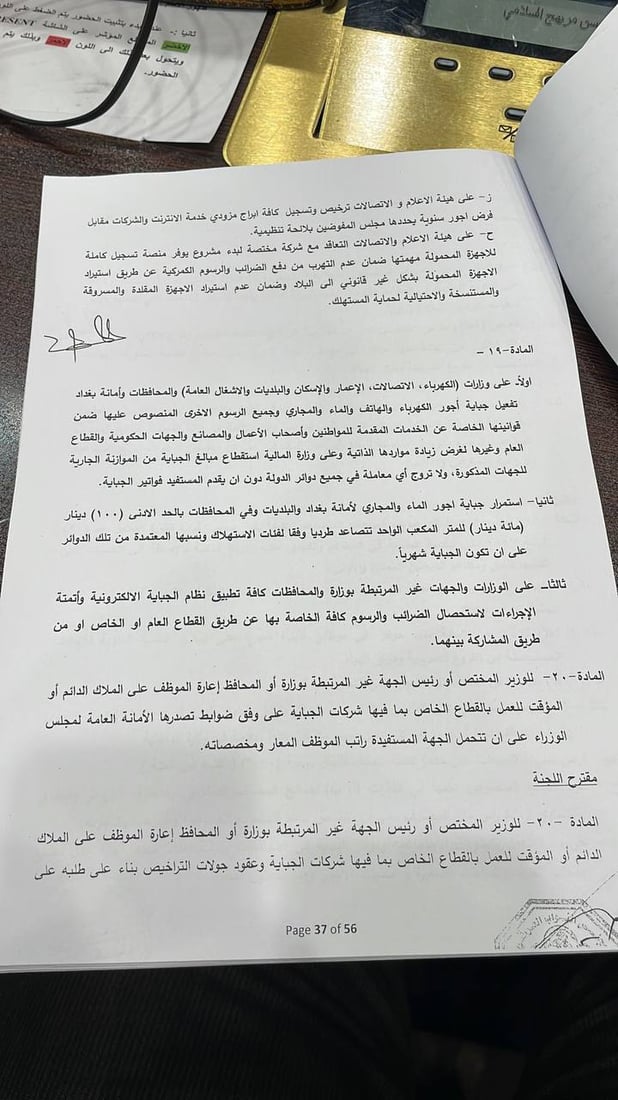 ثانيا :- عند بدء بتثبيت الحضور يتم الضغط على
الاخضر المؤشر على الشاشة PRESENT
ويتحول بعد ذلك الى اللون الاحمر وبذلك يتم
الحضور.
مريهج السلامي
ز- على هيئة الاعلام و الاتصالات ترخيص وتسجيل كافة ابراج مزودي خدمة الانترنت والشركات مقابل
فرض اجور سنوية يحددها مجلس المفوضين بلائحة تنظيمية.
ح- على هيئة الاعلام والاتصالات التعاقد مع شركة مختصة لبدء مشروع يوفر منصة تسجيل كاملة
للاجهزة المحمولة مهمتها ضمان عدم التهرب من دفع الضرائب والرسوم الكمركية عن طريق استيراد
الاجهزة المحمولة بشكل غير قانوني الى البلاد وضمان عدم استيراد الاجهزة المقلدة والمسروقة
والمستنسخة والاحتيالية لحماية المستهلك.
المادة-١٩ –
اولاً- على وزارات (الكهرباء، الاتصالات، الإعمار والإسكان والبلديات والاشغال العامة) والمحافظات وأمانة بغداد
تفعيل جباية أجور الكهرباء والهاتف والماء والمجاري وجميع الرسوم الاخرى المنصوص عليها ضمن
قوانينها الخاصة عن الخدمات المقدمة للمواطنين وأصحاب الأعمال والمصانع والجهات الحكومية والقطاع
العام وغيرها لغرض زيادة مواردها الذاتية وعلى وزارة المالية استقطاع مبالغ الجباية من الموازنة الجارية
للجهات المذكورة، ولا تروج أي معاملة في جميع دوائر الدولة دون ان يقدم المستفيد فواتير الجباية.
ثانيا- استمرار جباية اجور الماء والمجاري لأمانة بغداد والبلديات وفي المحافظات بالحد الادنى (١٠٠) دينار
(مائة دينار) للمتر المكعب الواحد تتصاعد طرديا وفقا لفئات الاستهلاك ونسبها المعتمدة من تلك الدوائر
على ان تكون الجباية شهرياً.
ثالثاـ على الوزارات والجهات غير المرتبطة بوزارة والمحافظات كافة تطبيق نظام الجباية الالكترونية وأتمتة
الإجراءات لاستحصال الضرائب والرسوم كافة الخاصة بها عن طريق القطاع العام او الخاص او من
طريق المشاركة بينهما.
المادة-٢٠- للوزير المختص أو رئيس الجهة غير المرتبطة بوزارة أو المحافظ إعارة الموظف على الملاك الدائم أو
المؤقت للعمل بالقطاع الخاص بما فيها شركات الجباية على وفق ضوابط تصدرها الأمانة العامة لمجلس
الوزراء على ان تتحمل الجهة المستفيدة راتب الموظف المعار ومخصصاته.
مقترح اللجنة
المادة -٢٠- للوزير المختص أو رئيس الجهة غير المرتبطة بوزارة أو المحافظ إعارة الموظف على الملاك
الدائم أو المؤقت للعمل بالقطاع الخاص بما فيها شركات الجباية وعقود جولات التراخيص بناء على طلبه على
Page 37 of 56